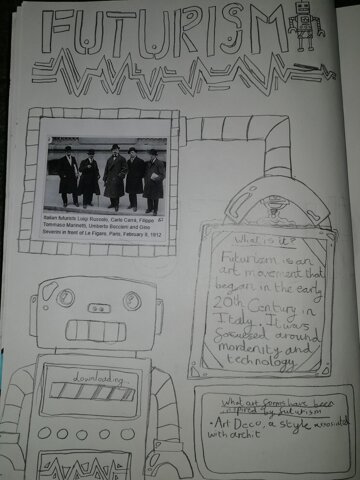 FUTURISM
Italian futurists Luigi Russolo, Carlo Carrà, Filippo
Tommaso Marinetti, Umberto Boccioni and Gino
Severini in front of Le Figaro, Paris, February 9, 1912
What is it?
Futurism is an
art movement that
began in the early
20th Century in
Italy. It was
focussed around
mordenity and
technology
downloading...
What art forms have been
inspired by futurism
• Art Deco, a style associated
with archit